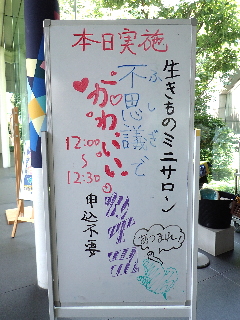 本日実施
生きものミニサロン
不思議で
ふしぎ
かわいい
12:00
～
12:30
申込不要